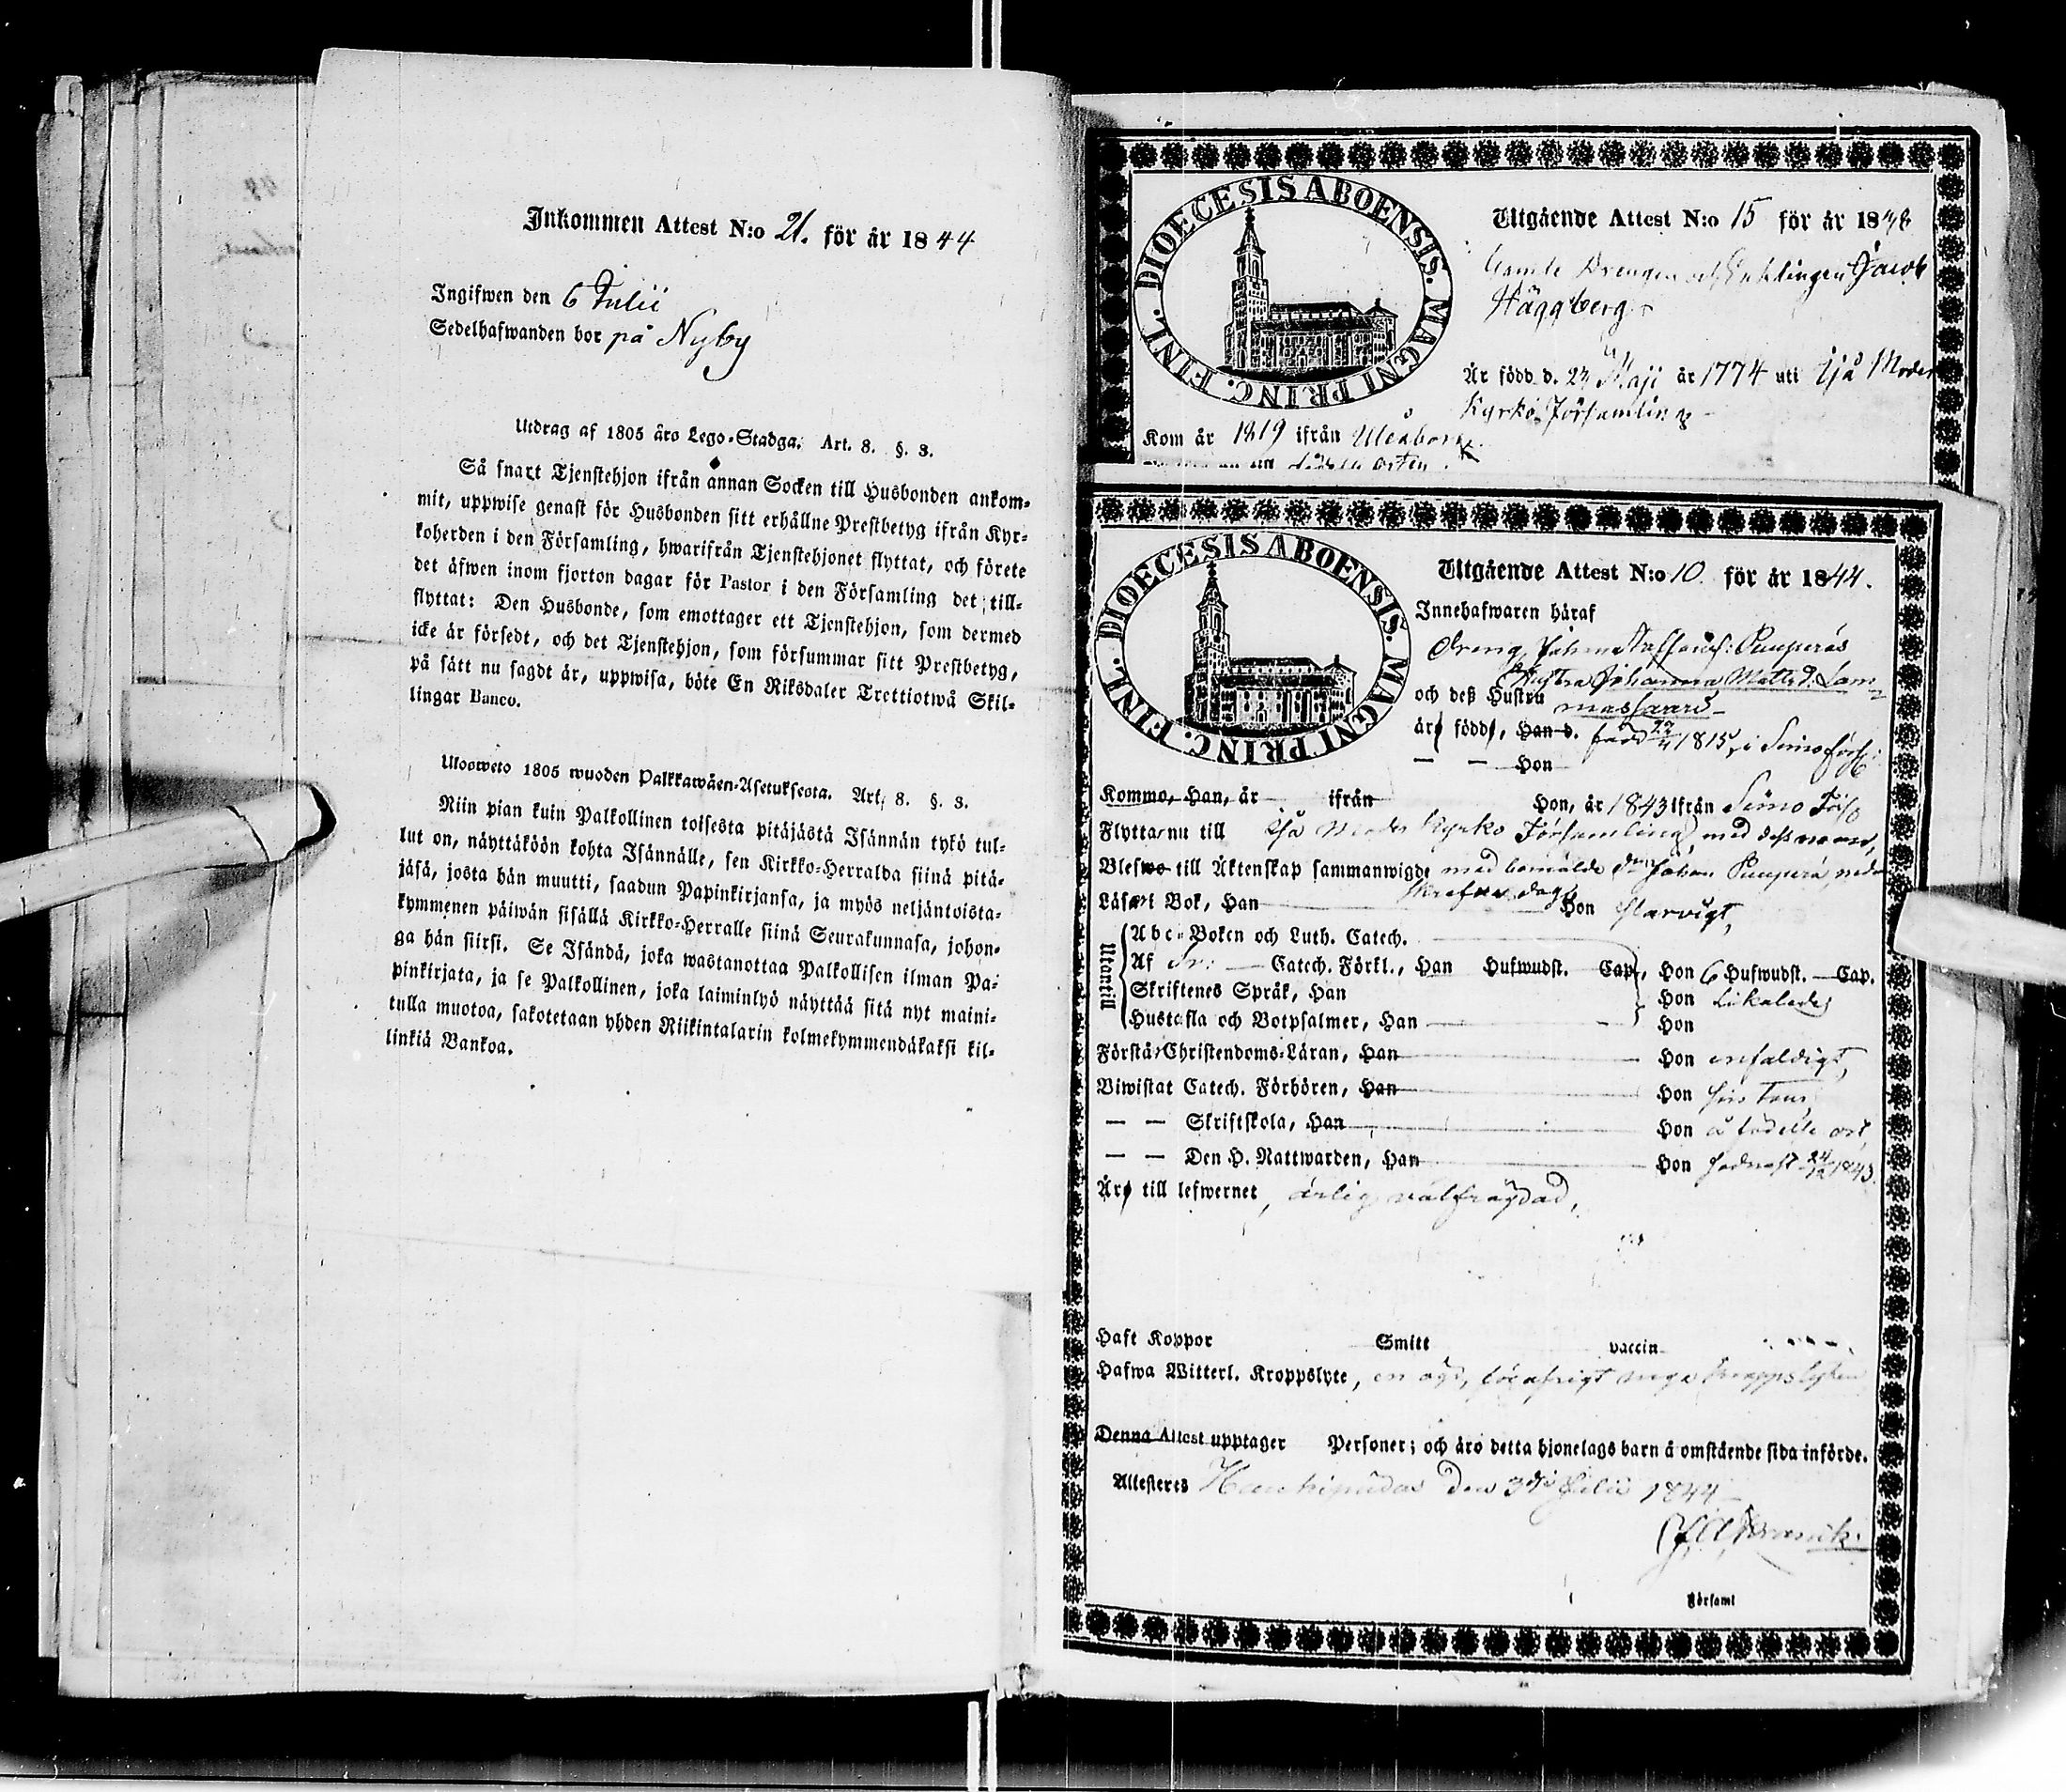 Inkommen Attest N:o 21. för år 1844
Ingifwen den 6 Julii
Sedelhafwanden bor på Nyby
Utdrag af 1805 års Lego-Stadga. Art. 8. §. 3.
Så snart Tjenstehjon ifrån annan Socken till Husbonden ankom-
mit, uppwise genast för Husbonden sitt erhållne Prestbetyg ifrån Kyr-
koherden i den Församling, hwarifrån Tjenstehjonet flyttat, och förete
det äfwen inom fjorton dagar för Pastor i den Församling det till-
flyttat: Den Husbonde, som emottager ett Tjenstehjon, som dermed
icke är försedt, och det Tjenstehjon, som försummar sitt Prestbetyg,
på sätt nu sagdt är, uppwisa, böte En Riksdaler Trettiotwå Skil-
lingar Banco.
Uloosweto 1805 wuoden Palkkawäen-Asetuksesta. Art. 8. §. 3.
Niin pian kuin Palkollinen toisesta pitäjästä Isännän tykö tul-
lut on, näyttäköön kohta Isännälle, sen Kirkko-Herralda siinä pitä-
jäsä, josta hän muutti, saadun Papinkirjansa, ja myös neljäntoista-
kymmenen päiwän sisällä Kirkko-Herralle siinä Seurakunnasa, johon-
ga hän siirsi. Se Isändä, joka wastanottaa Palkollisen ilman Pa-
pinkirjata, ja se Palkollinen, joka laiminlyö näyttää sitä nyt maini-
tulla muotoa, sakotetaan yhden Riikintalarin kolmekymmendäkaksi kil-
linkiä Bankoa.
DIOECESIS ABOENSIS. MAGNI PRINC. FINL.
Utgående Attest N:o 15 för år 1848
Gamle Drengen och Enklingen Jacob
Häggberg
Är född d. 24 Maji år 1774 uti Ijå Moder
Kyrko Församling
Kom år 1819 ifrån Uleåborg
orten
DIOECESIS ABOENSIS. MAGNI PRINC. FINL.
Utgående Attest N:o 10 för år 1844.
Innehafwaren häraf
Dreng Johan Puuperäs
Hustru Johanna Matts D. Lam-
och deß Hustru massaari
äro födde, Han d. född 1815, i Simo förs:
— — Hon
Kommo, Han, år ifrån Hon, år 1843 ifrån Simo Förs
Flyttar nu till Ijå Moder Kyrko Församling, med deß man,
Blefwo till Äktenskap sammanwigde med bemälde Johan Puuperä
dag
Läsa i Bok, Han Hon swagt,
Utantill
Abc-Boken och Luth. Catech.
Af Catech. Förkl., Han Hufwudst. Cap., Hon 6 Hufwudst. — Cap.
Skriftenes Språk, Han Hon likaledes
Hustafla och Botpsalmer, Han Hon
Förstå Christendoms-Läran, Han Hon enfaldigt,
Biwistat Catech. Förhören, Han Hon
— — Skriftskola, Han Hon å födelse ort,
— — Den H. Nattwarden, Han Hon sednast 24/12 1843.
Äro till lefwernet, ärlig välfrägdad,
Haft Koppor Smitt vaccin
Hafwa Witterl. Kroppslyte, för öfrigt inga kroppslyten
Denna Attest upptager Personer; och äro detta hjonelags barn å omstående sida införde.
Attesteres Haukipudas den 3dje Julii 1844
Församl